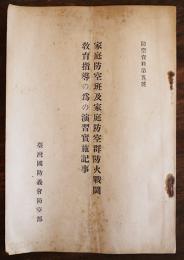 防空資料第五號
家庭防空班及家庭防空群防火戰鬪
教育指導の爲の演習實施記事
臺灣國防義會防空部